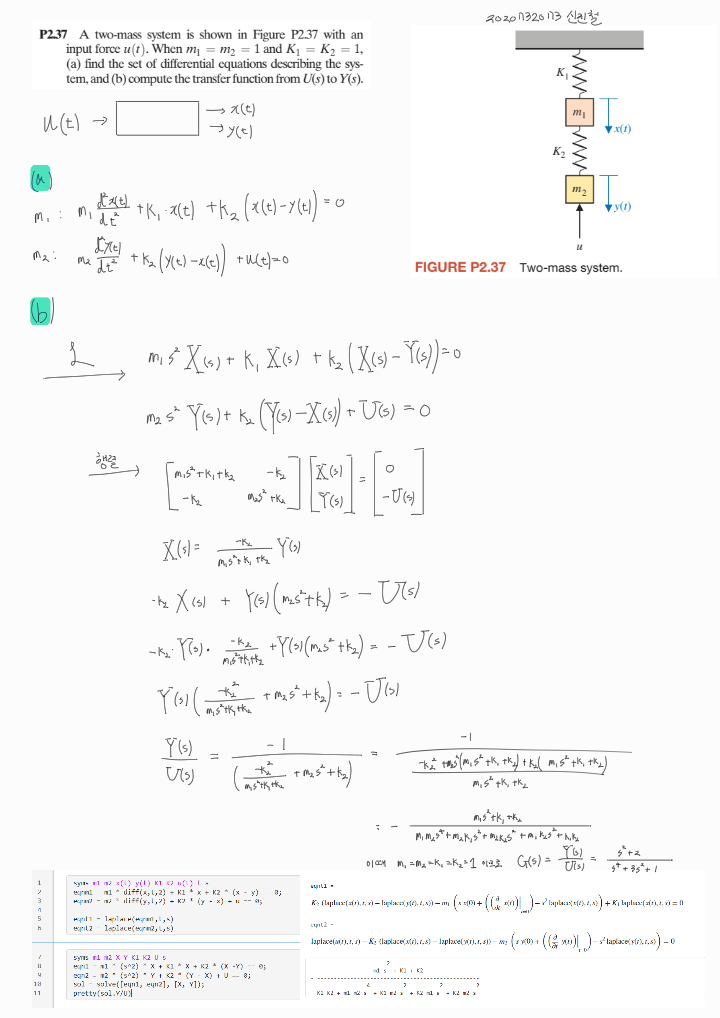 202017320173 신진철
P2.37 A two-mass system is shown in Figure P2.37 with an
input force u(t). When m₁ = m₂ = 1 and K₁ = K₂ = 1,
(a) find the set of differential equations describing the sys-
tem, and (b) compute the transfer function from U(s) to Y(s).
K₁
m₁
x(t)
K₂
m₂
y(t)
u
FIGURE P2.37 Two-mass system.
u(t) → → x(t)
→ y(t)
(a)
m₁ : m₁ d²x(t)/dt² + K₁ · x(t) + k₂ (x(t) - y(t)) = 0
m₂ : m₂ d²y(t)/dt² + k₂ (y(t) - x(t)) + u(t) = 0
(b)
L → m₁s² X(s) + K₁ X(s) + k₂ (X(s) - Y(s)) = 0
m₂s² Y(s) + k₂ (Y(s) - X(s)) + U(s) = 0
행렬 → [m₁s²+k₁+k₂ -k₂; -k₂ m₂s²+k₂] [X(s); Y(s)] = [0; -U(s)]
X(s) = -k₂/(m₁s²+k₁+k₂) Y(s)
-k₂ X(s) + Y(s)(m₂s²+k₂) = -U(s)
-k₂ · Y(s) · -k₂/(m₁s²+k₁+k₂) + Y(s)(m₂s²+k₂) = -U(s)
Y(s) (-k₂²/(m₁s²+k₁+k₂) + m₂s²+k₂) = -U(s)
Y(s)/U(s) = -1/(-k₂²/(m₁s²+k₁+k₂) + m₂s²+k₂) = -1/((-k₂² + m₂s²(m₁s²+k₁+k₂) + k₂(m₁s²+k₁+k₂))/(m₁s²+k₁+k₂))
= - (m₁s²+k₁+k₂)/(m₁m₂s⁴+m₂k₁s²+m₂k₂s²+m₁k₂s²+k₁k₂)
이때 m₁=m₂=k₁=k₂=1 이므로 G(s) = Y(s)/U(s) = (s²+2)/(s⁴+3s²+1)
1 syms m1 m2 x(t) y(t) K1 K2 u(t) t s
2 eqnm1 m1 * diff(x,t,2) + K1 * x + K2 * (x - y) 0;
3 eqnm2 = m2 * diff(y,t,2) + K2 * (y - x) + u == 0;
4
5 eqnt1 = laplace(eqnm1,t,s)
6 eqnt2 = laplace(eqnm2,t,s)
7 syms m1 m2 X Y K1 K2 U s
8 eqn1 = m1 * (s^2) * X + K1 * X + K2 * (X -Y) == 0;
9 eqn2 = m2 * (s^2) * Y + K2 * (Y - X) + U == 0;
10 sol = solve([eqn1, eqn2], [X, Y]);
11 pretty(sol.Y/U)
eqnt1 =
K₂ (laplace(x(t), t, s) − laplace(y(t), t, s)) − m₁ (s x(0) + ((∂/∂t x(t))|t=0) − s² laplace(x(t), t, s)) + K₁ laplace(x(t), t, s) = 0
eqnt2 =
laplace(u(t), t, s) − K₂ (laplace(x(t), t, s) − laplace(y(t), t, s)) − m₂ (s y(0) + ((∂/∂t y(t))|t=0) − s² laplace(y(t), t, s)) = 0
2
m1 s + K1 + K2
- ------------------------------------------------
4 2 2 2
K1 K2 + m1 m2 s + K1 m2 s + K2 m1 s + K2 m2 s